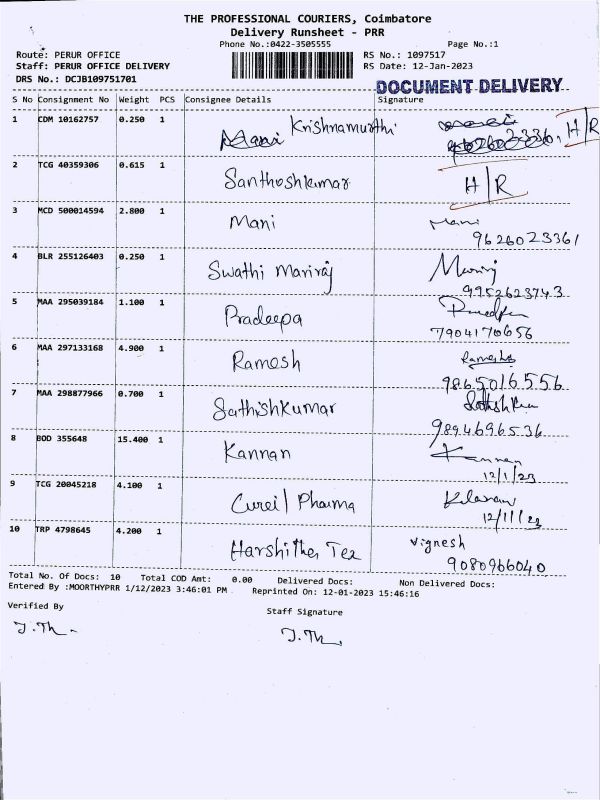 THE PROFESSIONAL COURIERS, Coimbatore
Delivery Runsheet - PRR
Phone No.:0422-3505555 Page No.:1
Route: PERUR OFFICE RS No.: 1097517
Staff: PERUR OFFICE DELIVERY RS Date: 12-Jan-2023
DRS No.: DCJB109751701
DOCUMENT DELIVERY
S No Consignment No Weight PCS Consignee Details Signature
1 CDM 10162757 0.250 1 Krishnamurthi H/R
2 TCG 40359306 0.615 1 Santhoshkumar H/R
3 MCD 500014594 2.800 1 Mani Mani
9626023361
4 BLR 255126403 0.250 1 Swathi Mariraj
9952623743
5 MAA 295039184 1.100 1 Pradeepa
7904170656
6 MAA 297133168 4.900 1 Ramesh
9865016556
7 MAA 298877966 0.700 1 Sathishkumar
9894696536
8 BOD 355648 15.400 1 Kannan Kannan
12/1/23
9 TCG 20045218 4.100 1 Pharma
10 TRP 4798645 4.200 1 Tex Vignesh
9080966040
Total No. Of Docs: 10 Total COD Amt: 0.00 Delivered Docs: Non Delivered Docs:
Entered By :MOORTHYPRR 1/12/2023 3:46:01 PM Reprinted On: 12-01-2023 15:46:16
Verified By Staff Signature